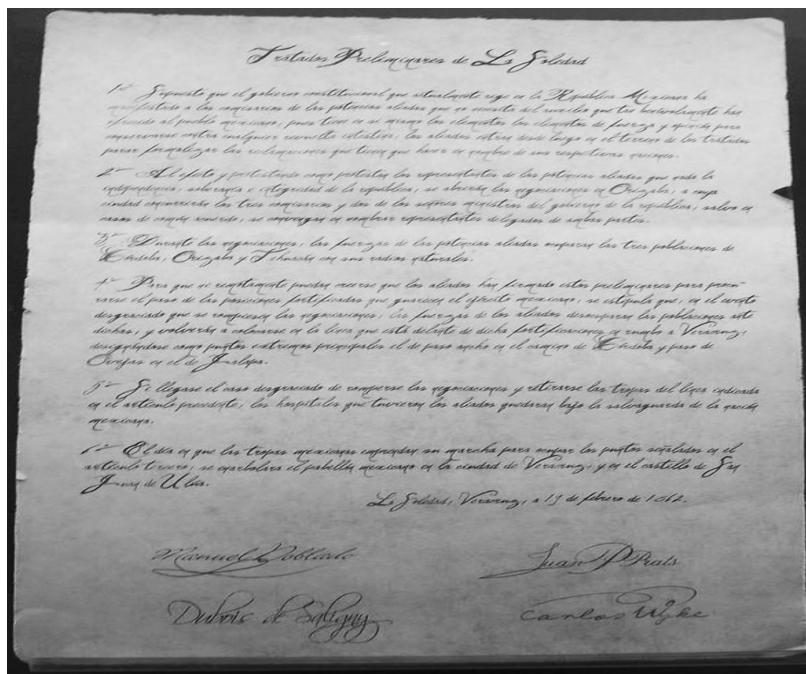 Tratados Preliminares de La Soledad
1º Supuesto que el gobierno constitucional que actualmente rige en la República Mexicana ha
manifestado a los comisarios de las potencias aliadas que no necesita del auxilio que tan benévolamente han
ofrecido al pueblo mexicano, pues tiene en sí mismo los elementos los elementos de fuerza y opinión para
conservarse contra cualquier revuelta intestina; los aliados entran desde luego en el terreno de los tratados
para formalizar las reclamaciones que tienen que hacer en nombre de sus respectivas naciones.
2º Al efecto y protestando como protestan los representantes de las potencias aliadas que nada la
independencia, soberanía e integridad de la república, se abrirán las negociaciones en Orizaba, a cuya
ciudad concurrirán los tres comisarios y dos de los señores ministros del gobierno de la república, salvo en
casos de común acuerdo, se convenga en nombrar representantes delegados de ambas partes.
3º Durante las negociaciones, las fuerzas de las potencias aliadas ocuparán las tres poblaciones de
Córdoba, Orizaba y Tehuacán con sus radios naturales.
4º Para que ni remotamente pueda creerse que los aliados han firmado estos preliminares para procu-
rarse el paso de las posiciones fortificadas que guarnece el ejército mexicano, se estipula que, en el evento
desgraciado que se rompiesen las negociaciones, las fuerzas de los aliados desocuparán las poblaciones ante
dichas, y volverán a colocarse en la línea que está delante de dicha fortificaciones en rumbo a Veracruz;
designándose como puntos extremos principales el de paso ancho en el camino de Córdoba y paso de
Ovejas en el de Jalapa.
5º Si llegase el caso desgraciado de romperse las negociaciones y retirarse las tropas del línea indicada
en el artículo precedente, los hospitales que tuvieren los aliados quedarán bajo la salvaguarda de la nación
mexicana.
6º El día en que las tropas mexicanas emprendan su marcha para ocupar los puntos señalados en el
artículo tercero, se enarbolara el pabellón mexicano en la ciudad de Veracruz, y en el castillo de San
Juan de Ulúa.
La Soledad, Veracruz, a 19 de febrero de 1862.
Manuel Doblado
Juan P Prats
Dubois de Saligny
Carlos Wyke